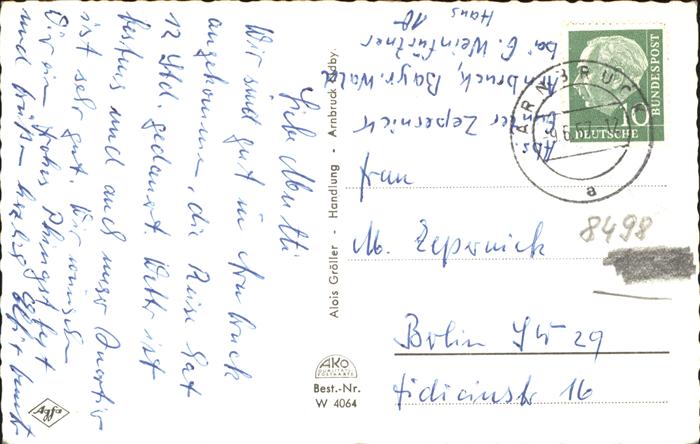 Liebe Mutti
Wir sind gut in Arnbruck
angekommen, die Reise hat
12 Std. gedauert. Wetter ist
bestens und auch unser Quartier
ist sehr gut. Wir wünschen
Dir ein frohes Pfingstfest
und grüßen herzlich
Abs:
Zepernick
Arnbruck, Bayr. Wald
bei E. Weinfurtner
Haus 10
Alois Gröller - Handlung - Arnbruck
10
DEUTSCHE
BUNDESPOST
ARNBRUCK
a
Frau
M. Zepernick
8498
Berlin SW 29
Fidicinstr 16
AKO
Best.-Nr.
W 4064
Agfa